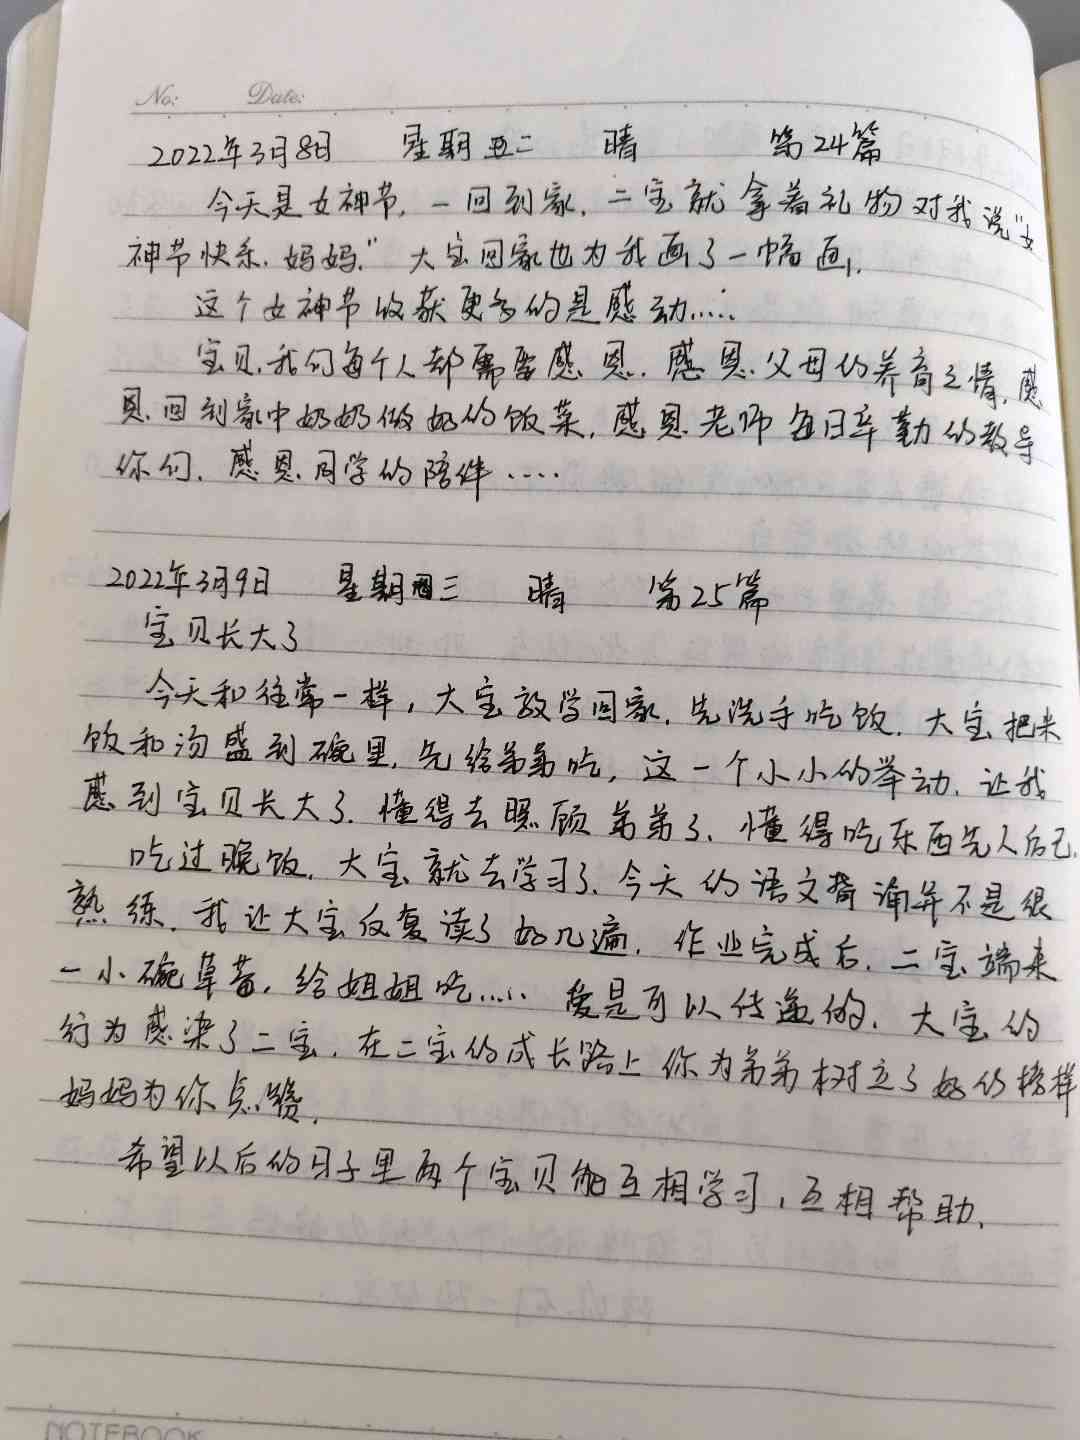 No:  Date:
2022年3月8日 星期二 晴 第24篇
今天是女神节,一回到家,二宝就拿着礼物对我说"女
神节快乐,妈妈."大宝回家也为我画了一幅画.
这个女神节收获更多的是感动……
宝贝,我们每个人都需要感恩.感恩父母的养育之情,感
恩回到家中奶奶做好的饭菜,感恩老师每日辛勤的教导
你们.感恩同学的陪伴……
2022年3月9日 星期三 晴 第25篇
宝贝长大了
今天和往常一样,大宝放学回家.先洗手吃饭.大宝把米
饭和汤盛到碗里,先给弟弟吃,这一个小小的举动.让我
感到宝贝长大了.懂得去照顾弟弟了.懂得吃东西先人后己.
吃过晚饭.大宝就去学习了.今天的语文背诵并不是很
熟练.我让大宝反复读了好几遍.作业完成后.二宝端来
一小碗草莓,给姐姐吃…… 爱是可以传递的.大宝的
行为感染了二宝.在二宝的成长路上你为弟弟树立了好的榜样
妈妈为你点赞.
希望以后的日子里两个宝贝能互相学习,互相帮助.
NOTEBOOK